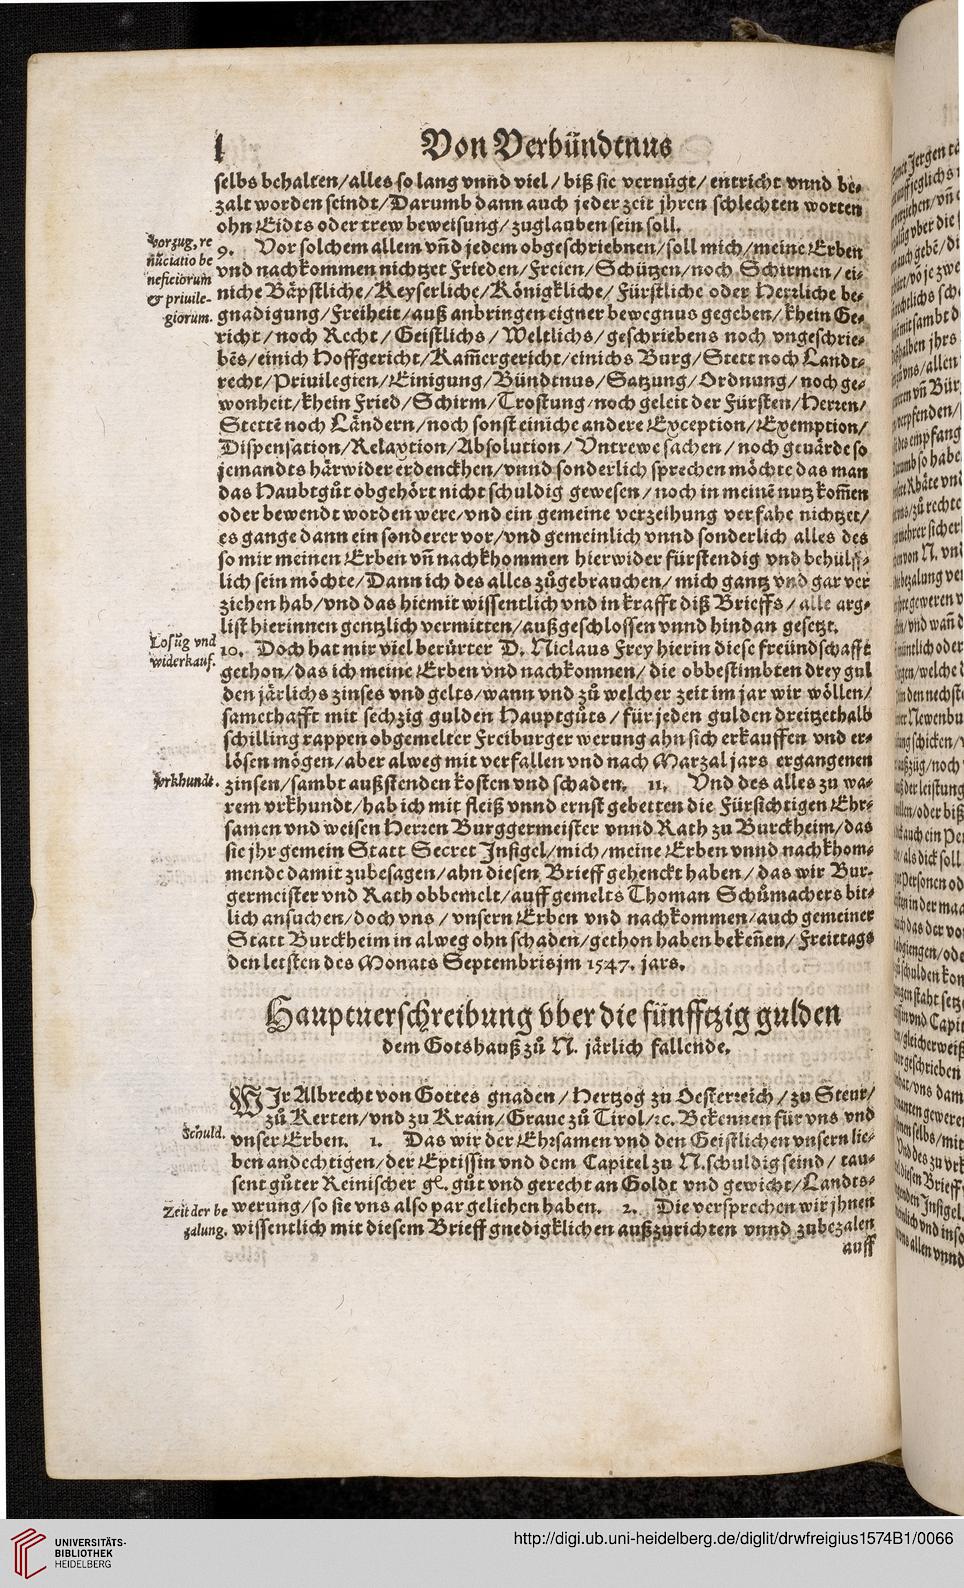 l
Von Verbündtnus
selbs behalten/alles so lang vnnd viel / biß sie vernügt/ entricht vnnd be⸗
zalt worden seindt/Darumb dann auch jeder zeit jhren schlechten worten
ohn Eidts oder trew beweisung/ zuglauben sein soll.
Vorzug, re
nũciatio be
neficiorum
& priuile-
giorum.
9. Vor solchem allem vñd jedem obgeschriebnen/soll mich/meine Erben
vnd nachkommen nichtzet Frieden/Freien/Schützen/noch Schirmen / ei⸗
niche Bäpstliche/Keyserliche/Königkliche/ Fürstliche oder Herrliche be⸗
gnadigung/Freiheit/auß anbringen eigner bewegnus gegeben/ khein Ge⸗
richt / noch Recht / Geistlichs / Weltlichs/ geschriebens noch vngeschrie⸗
bẽs/einich Hoffgericht/Kam̃ergericht/einichs Burg/Stett noch Landt⸗
recht/Priuilegien/Einigung/Bündtnus/Satzung/Ordnung/ noch ge⸗
wonheit/khein Fried/Schirm/Trostung/noch geleit der Fürsten/Herren/
Stettẽ noch Ländern/noch sonst einiche andere Exception/Exemption/
Dispensation/Relaxtion/Absolution / Vntrewe sachen / noch geuärde so
jemandts härwider erdenckhen/vnnd sonderlich sprechen möchte das man
das Haubtgůt obgehört nicht schuldig gewesen / noch in meinẽ nutz kom̃en
oder bewendt worden were/vnd ein gemeine verzeihung verfahe nichtzet/
es gange dann ein sonderer vor/vnd gemeinlich vnnd sonderlich alles des
so mir meinen Erben vñ nachkhommen hierwider fürstendig vnd behülff⸗
lich sein möchte/Dann ich des alles zůgebrauchen/ mich gantz vnd gar ver
ziehen hab/vnd das hiemit wissentlich vnd in krafft diß Brieffs / alle arg⸗
list hierinnen gentzlich vermitten/außgeschlossen vnnd hindan gesetzt.
Losũg vnd
widerkauf.
10. Doch hat mir viel berürter D. Niclaus Frey hierin diese freündschafft
gethon/das ich meine Erben vnd nachkomnen/ die obbestimbten drey gul
den järlichs zinses vnd gelts/wann vnd zů welcher zeit im jar wir wöllen/
samethafft mit sechzig gulden Hauptgůts / für jeden gulden dreitzethalb
schilling rappen obgemelter Freiburger werung ahn sich erkauffen vnd er⸗
lösen mögen/aber alweg mit verfallen vnd nach Marzal jars ergangenen
Vrkhundt.
zinsen/sambt außstenden kosten vnd schaden. 11. Vnd des alles zu wa⸗
rem vrkhundt/hab ich mit fleiß vnnd ernst gebetten die Fürsichtigen Ehr⸗
samen vnd weisen Herren Burggermeister vnnd Rath zu Burckheim/das
sie jhr gemein Statt Secret Insigel/mich/meine Erben vnnd nachkhom⸗
mende damit zubesagen/ahn diesen Brieff gehenckt haben / das wir Bur⸗
germeister vnd Rath obbemelt/auff gemelts Thoman Schůmachers bit⸗
lich ansuchen/doch vns / vnsern Erben vnd nachkommen/auch gemeiner
Statt Burckheim in alweg ohn schaden/gethon haben bekeñen/ Freittags
den letsten des Monats Septembris jm 1547. jars.
Hauptuerschreibung vber die fünfftzig gulden
dem Gotshauß zů N. järlich fallende.
WIr Albrecht von Gottes gnaden / Hertzog zu Oesterreich / zu Steur/
zů Kerten/vnd zu Krain/Graue zů Tirol/ꝛc. Bekennen für vns vnd
Schuld.
vnser Erben. 1. Das wir der Ehrsamen vnd den Geistlichen vnsern lie⸗
ben andechtigen/der Eptissin vnd dem Capitel zu N. schuldig seind / tau⸗
sent gůter Reinischer gl. gůt vnd gerecht an Goldt vnd gewicht/Landts⸗
Zeit der be
zalung.
werung/so sie vns also par geliehen haben. 2. Die versprechen wir jhnen
wissentlich mit diesem Brieff gnedigklichen außzurichten vnnd zubezalen
auff
UNIVERSITÄTS-
BIBLIOTHEK
HEIDELBERG
http://digi.ub.uni-heidelberg.de/diglit/drwfreigius1574B1/0066